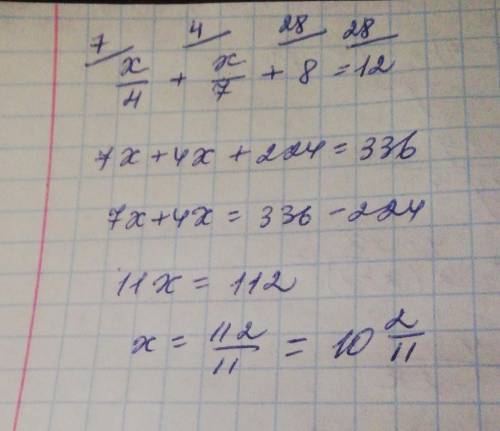 7 4 28 28
x/4 + x/7 + 8 = 12
7x + 4x + 224 = 336
7x + 4x = 336 - 224
11x = 112
x = 112/11 = 10 2/11